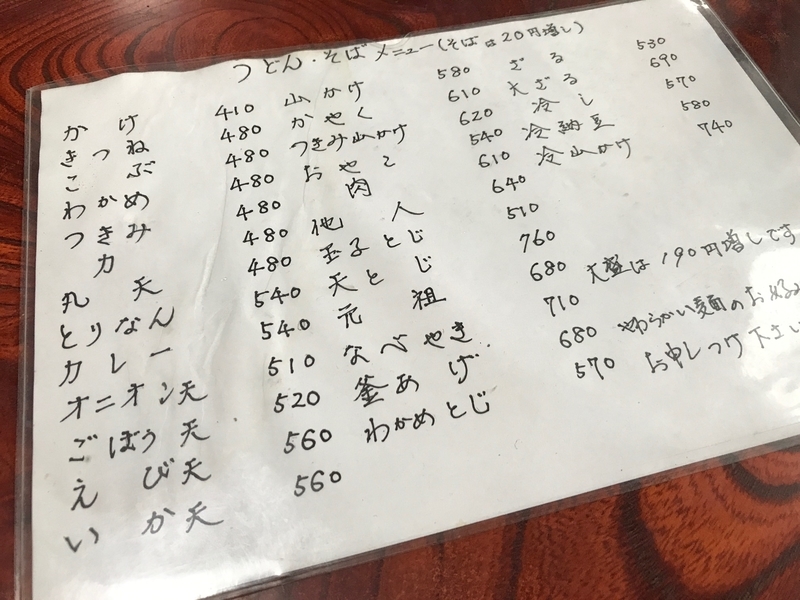 うどん・そばメニュー(そばは20円増し)
かけ 410
きつね 480
こぶ 480
わかめ 480
つきみ 480
力 480
丸天 480
とりなん 540
カレー 540
オニオン天 510
ごぼう天 520
えび天 560
いか天 560
山かけ 580
かやく 610
つきみ山かけ 620
おやこ 540
肉 610
他人 640
玉子とじ 510
天とじ 760
元祖 680
なべやき 710
釜あげ 680
わかめとじ 570
ざる 530
大ざる 690
冷し 570
冷納豆 580
冷山かけ 740
大盛は190円増しです
やわらかい麺のお好み
お申しつけ下さい